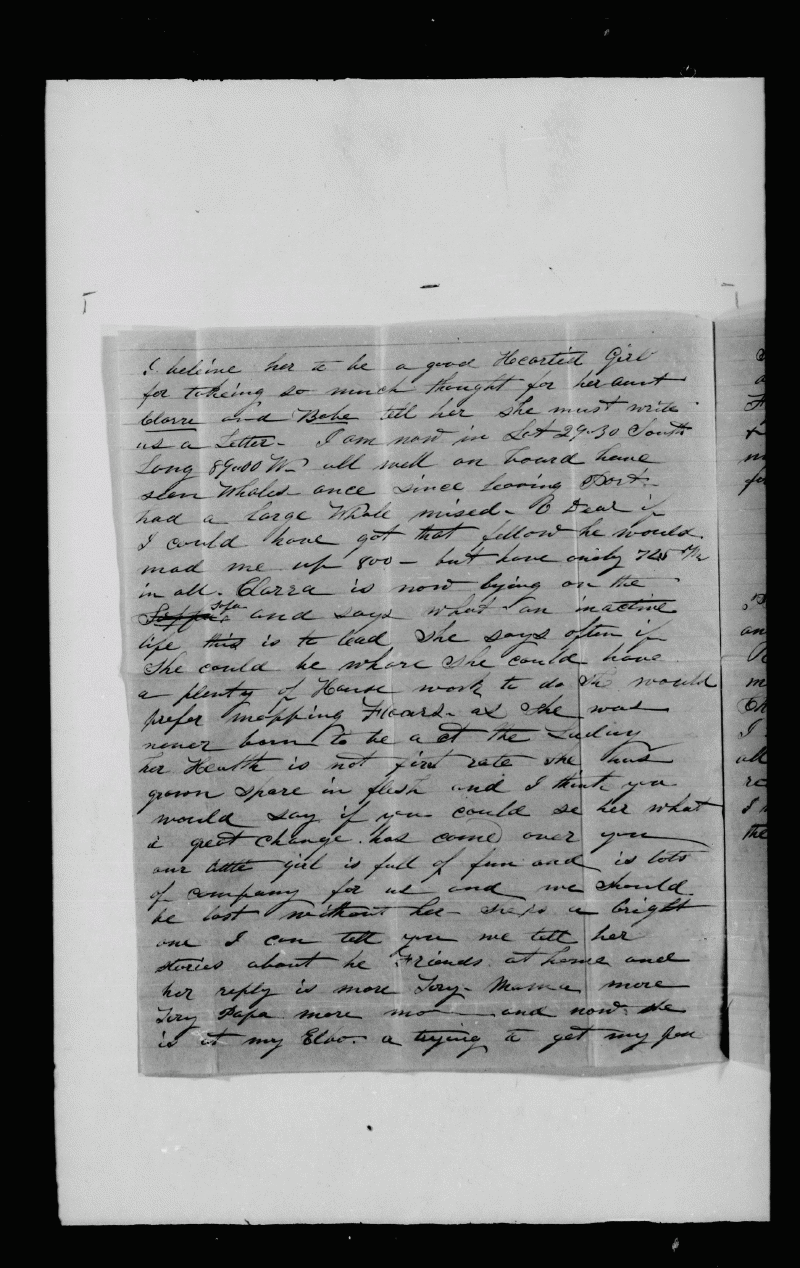 I believe her to be a good Heartid Girl
for takeing so much thought for her aunt
Clarra and Babe tell her she must write
us a Letter - I am now in Lat 29.30 South
Long 89.00 W - all well on board have
seen Whales once since leaving Port -
had a large Whale mised - O Dear if
I could have got that fellow he would
mad me up 800 - but have only 725
in all. Clarra is now lying on the
Sopha Sofa and says what an inactive
life this is to lead she says often if
She could be whare she could have
a plenty of House work to do she would
prefer mopping Floars - as she was
never born to be a the Ladiey
her Health is not first rate she has
grown spare in flesh and I think you
would say if you could se her what
a greet change has come over you
our little girl is full of fun and is lots
of company for us and we should
be lost without her - she is a bright
one I can tell you we tell her
stories about he Friends at home and
her reply is more Tory - Mama more
Tory Papa more mo and now she
is at my Elbo. a trying to get my pen